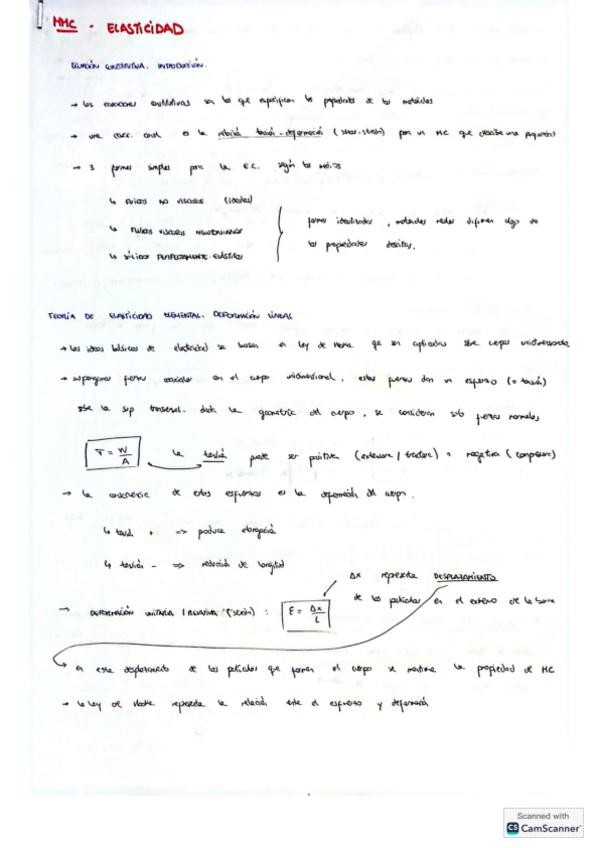 MMC - ELASTICIDAD
ECUACIÓN CONSTITUTIVA. INTRODUCCIÓN.
→ las ecuaciones constitutivas son las que especifican las propiedades de los materiales
→ una ecc. const. es la relación tensión-deformación (stress-strain) para un MC que describe una
→ 3 formas simples para la E.C. según los
↳ FLUIDOS NO VISCOSOS (ideales)
↳ FLUIDOS VISCOSOS NEWTONIANOS
↳ SÓLIDOS PERFECTAMENTE ELÁSTICOS
formas idealizadas, materiales reales difieren algo de
las propiedades descritas.
TEORÍA DE ELASTICIDAD ELEMENTAL. DEFORMACIÓN LINEAL
→ Las ideas básicas de elasticidad se basan en ley de Hooke que son aplicadas sobre cuerpos unidimensionales
→ supongamos fuerzas axiales en el cuerpo unidimensional, estas fuerzas dan un esfuerzo (o tensión)
sobre la sup transversal. dada la geometría del cuerpo, se consideran solo fuerzas normales
T = N/A
la tensión puede ser positiva (extensora / tractora) o negativa (compresora)
→ la consecuencia de estos esfuerzos es la deformación del cuerpo.
↳ tensión + => produce elongación
↳ tensión - => reducción de longitud
Δx representa DESPLAZAMIENTO
de las partículas en el extremo de la barra
→ DEFORMACIÓN UNITARIA / RELATIVA (strain) : E = Δx/L
en este desplazamiento de las partículas que forman el cuerpo se mantiene la propiedad de MC
→ la ley de Hooke representa la relación entre el esfuerzo y deformación
Scanned with
CS CamScanner